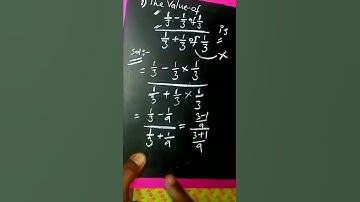 1) The Value of
1/3 - 1/3 of 1/3
1/3 + 1/3 of 1/3 is =
Soln:- ×
= 1/3 - 1/3 × 1/3
1/3 + 1/3 × 1/3
= 1/3 - 1/9 = 3-1/9
1/3 + 1/9 3+1/9